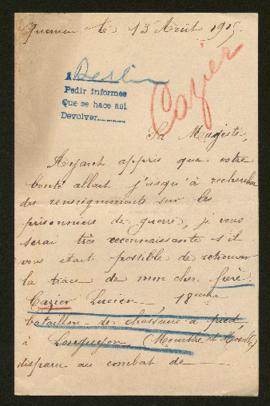 le 13 Août 1915
Berlin
Pedir informes
Que se hace asi
Devolver
Cazier
Sa Majesté,
Ayant appris que votre
bonté allait jusqu'à rechercher
des renseignements sur les
prisonniers de guerre, je vous
serai très reconnaissante s'il
vous était possible de retrouver
la trace de mon cher frère
Cazier Lucien 18ème
bataillon de chasseurs à pied
à Longuyon (Meurthe et Moselle)
disparu au combat de